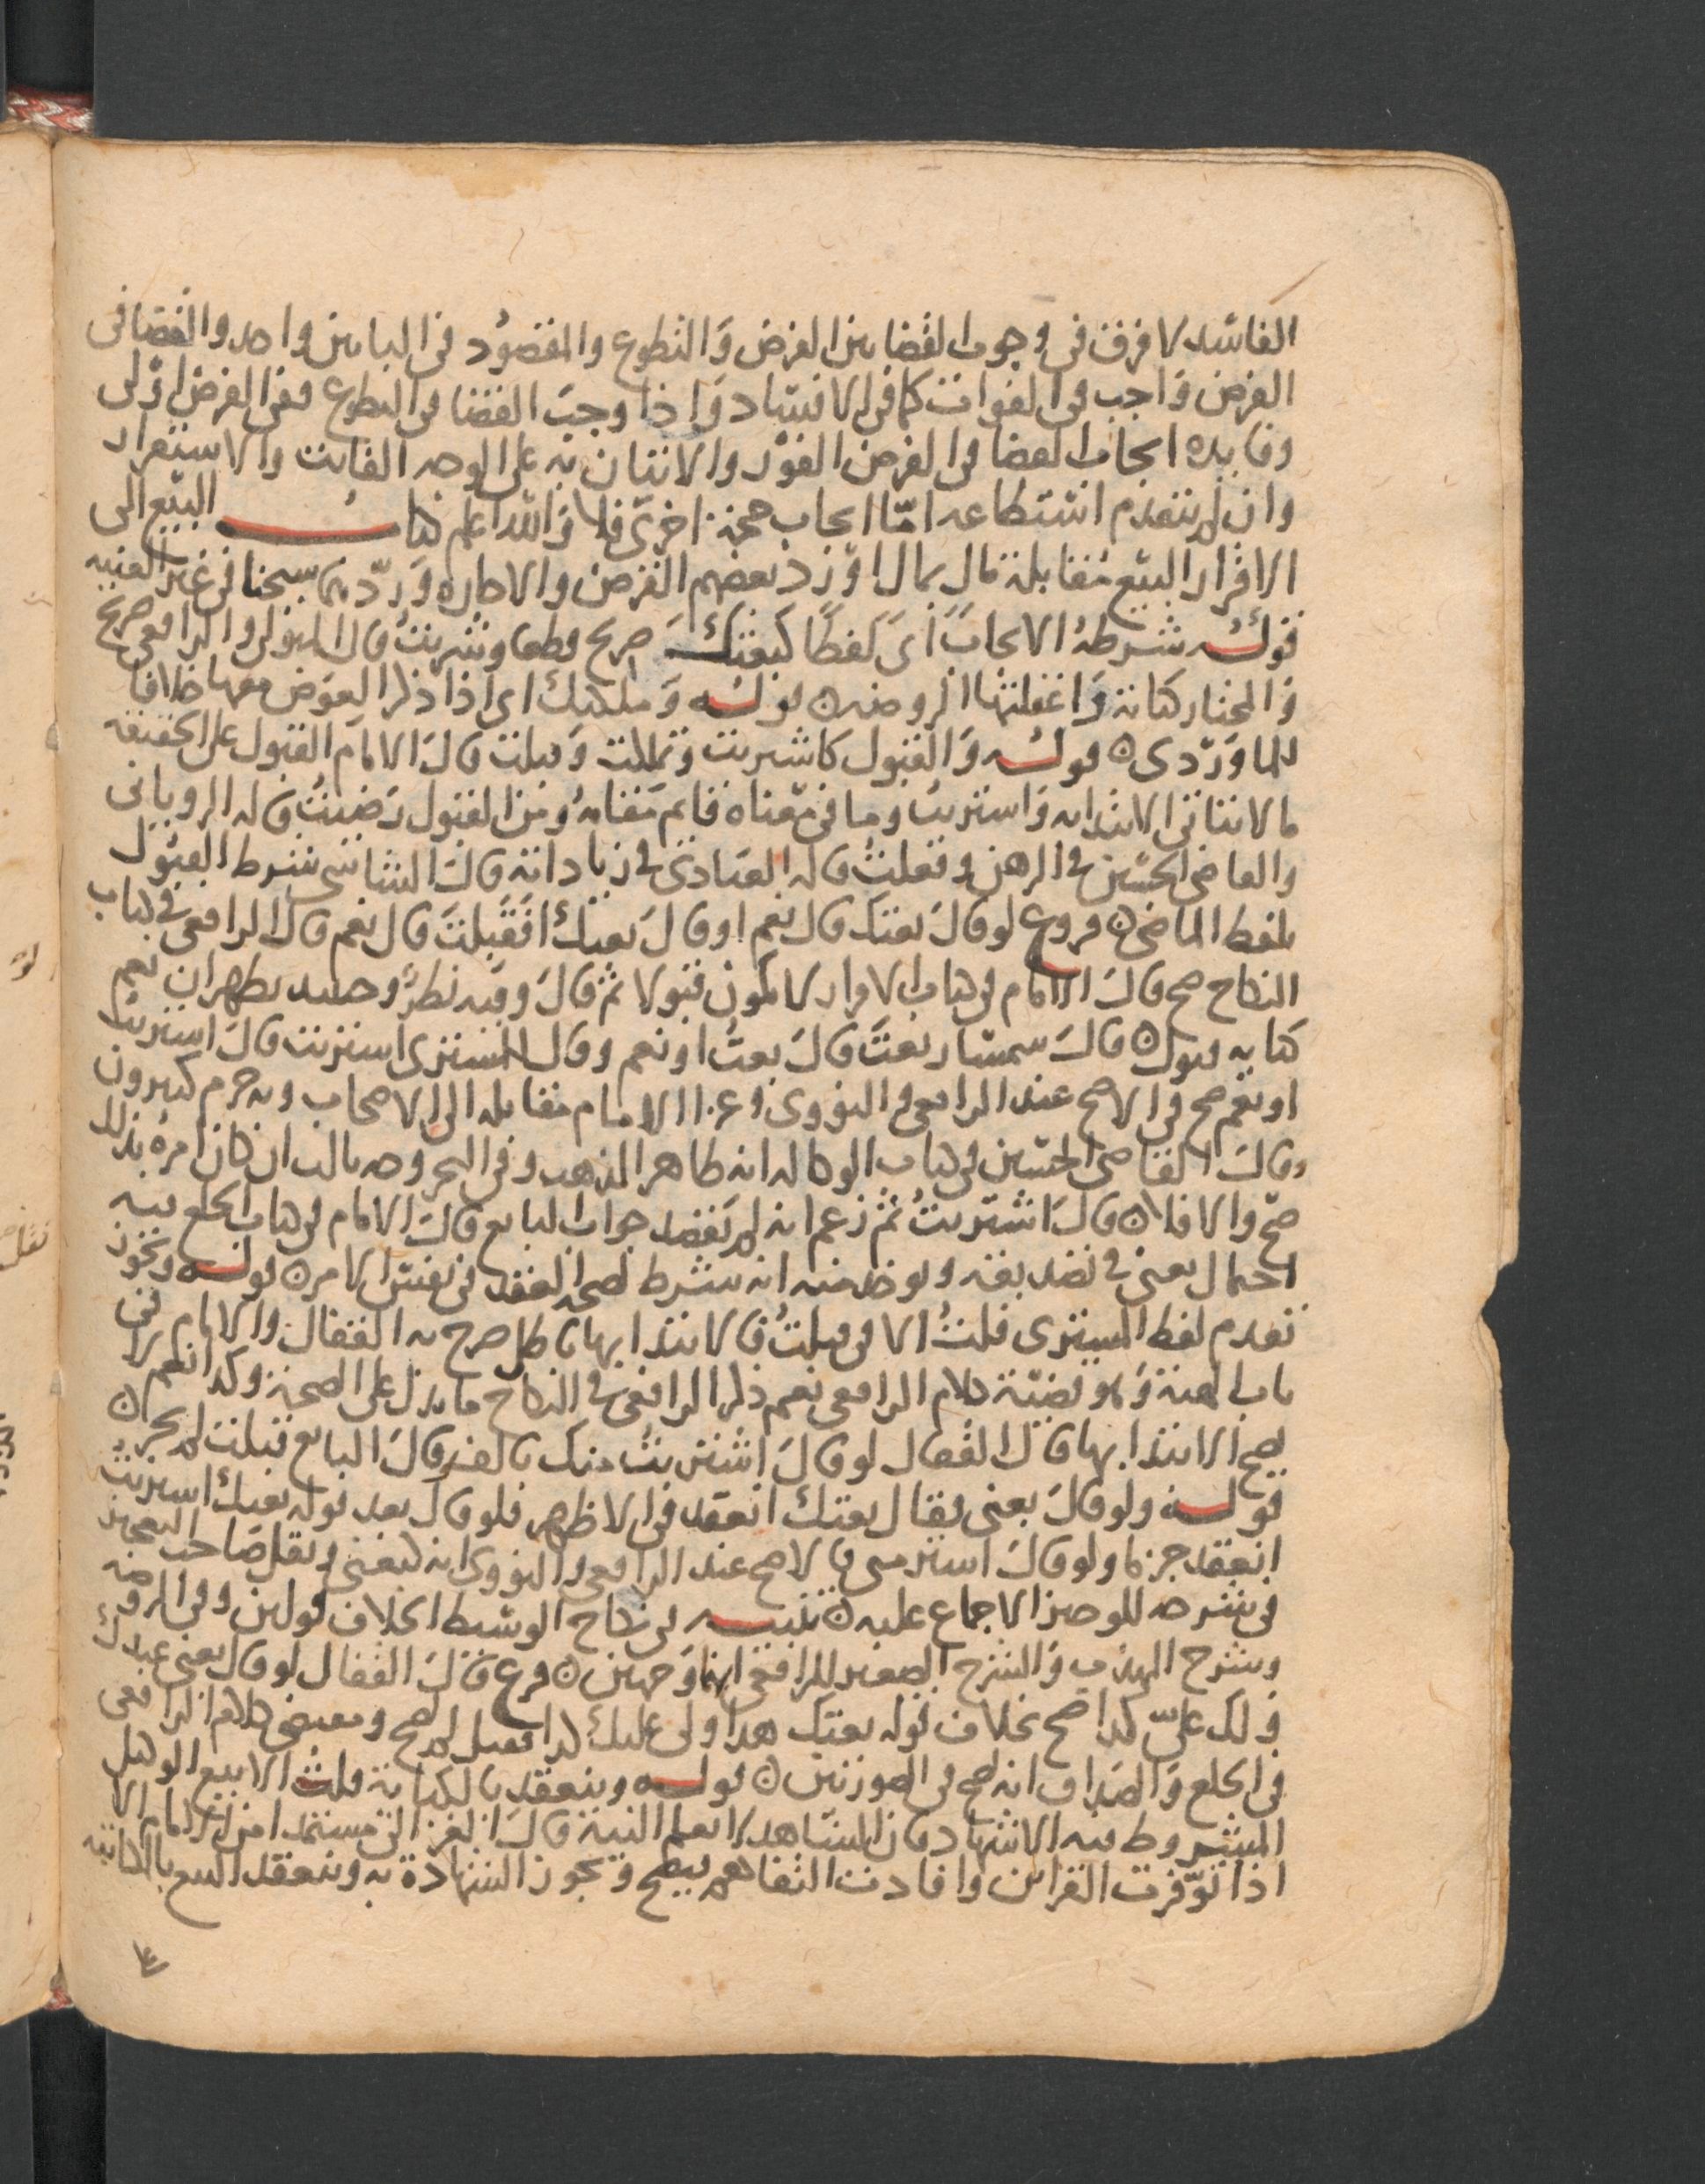 الفاسد لا فرق في وجوب القضا بين الفرض والتطوع والمقصود في البابين واحد والقضا في
الفرض واجب في الفوات كما في الافساد واذا وجب القضا في التطوع ففي الفرض اولى
وفايده ايجاب القضا في الفرض الفور والاتيان به على الوجه الفائت والاستقرار
وان لم يتقدم استطاعه امّا ايجاب حجة اخرى فلا والله اعلم كتاب البيع الى
الاقرار البيع مقابلة مال بمال اورد بعضهم القرض والاجاره وردّهما شيخنا في غير الغنيه
قوله شرطه الايجاب اى لفظا كبعتك صريح قطعا وشريت قال المتولى والرافعي صريح
والمختار كناية واغفلتها الروضه ن قوله وملكتك اى اذا ذكر العوض معها خلافا
للماوردى ن قوله والقبول كاشتريت وتملكت وقبلت قال الامام القبول على الحقيقه
ما لا يتاتى الابتدا به واشتريت وما في معناه قايم مقامه ومن القبول رضيت قاله الروياني
والقاضي الحسين في الرهن وفعلت قاله العبادى في زياداته قال الشاشي شرط القبول
بلفظ الماضي ن فروع لو قال بعتك قال نعم او قال بعتك اقبلت قال نعم قال الرافعي في كتاب
النكاح صح قال الامام في كتاب الاقرار لا يكون قبولا ثم قال وفيه نظر وحينئذ يظهر ان نعم
كنايه قبول ن قال سمسار بعت قال بعت او نعم وقال للمشترى اشتريت قال اشتريت
او نعم صح في الاصح عند الرافعي والنووى وعزا الامام مقابله الى الاصحاب وبه جزم كثيرون
وقال القاضي الحسين في كتاب الوكاله انه ظاهر المذهب وفي البحر وجه ثالث ان كان امره بذلك
صح والا فلا ن قال اشتريت ثم زعم انه لم يقصد جواب البايع قال الامام في كتاب الخلع فيه
احتمال يعنى في تصديقه ويوخذ منه انه يشترط لصحه العقد في نفس الامر ن قوله ويجوز
تقدم لفظ المشترى قلت الا في قبلت فالابتدا بها باطل صرح به القفال والامام في
باب الهبة وهو قضية كلام الرافعي نعم ذكر الرافعي في النكاح ما يدل على الصحة وكذا نعم لا
يصح الابتدا بها قال القفال لو قال اشتريت منك بالف وقال البايع قبلت لم يجز ن
قوله ولو قال بعنى فقال بعتك انعقد في الاظهر فلو قال بعد قوله بعتك اشتريت
انعقد جزما ولو قال اشتر منى فالاصح عند الرافعي والنووى انه كبعنى ونقل صاحب التعجيز
في شرحه للوجيز الاجماع عليه ن تنبيه في نكاح الوسيط الخلاف قولين وفي الروضه
وشرح المهذب والشرح الصغير للرافعي انها وجهين ن فرع قال القفال لو قال بعنى عبدك
ولك على كذا صح بخلاف قوله بعتك هذا ولى عليك كذا فقبل لم يصح ومقتضى كلام الرافعي
في الخلع والصداق انه يصح في الصورتين ن قوله وينعقد بالكناية قلت الا بيع الوكيل
المشروط فيه الاشهاد فان الشاهد لا يعلم النية قال الغزالى مستمدا من الامام الا
اذا توفرت القراين وافادت التفاهم فيصح وتجوز الشهادة به وينعقد البيع بالمكاتبه